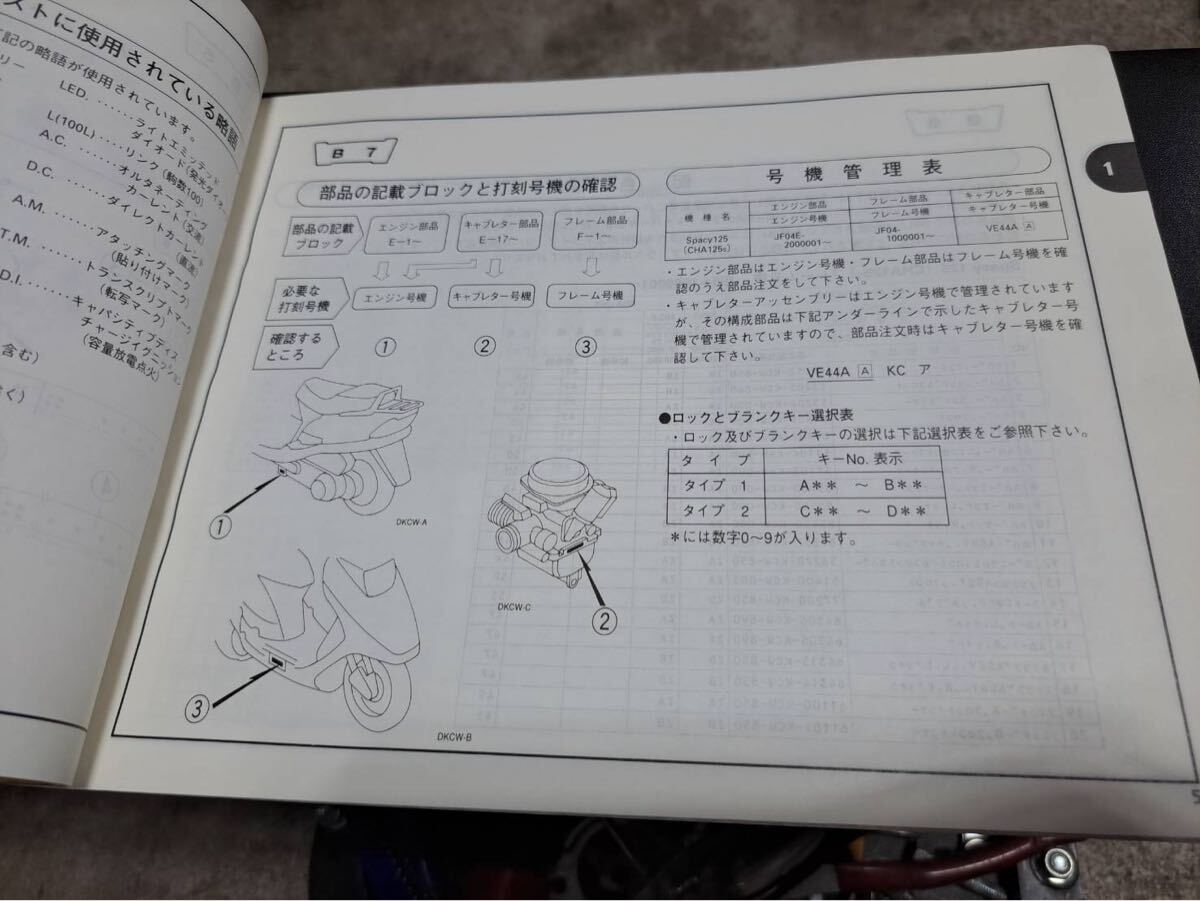 ストに使用されている略語
記の略語が使用されています。
リー
LED. ‥‥‥‥ライトエミッテッド
ダイオード(発光ダイオ
L(100L)‥‥‥リンク(駒数100)
A.C. ‥‥‥オルタネーティング
カーレント(交流)
D.C. ‥‥‥ダイレクトカーレント
(直流)
A.M. ‥‥‥アタッチングマーク
(貼り付けマーク)
T.M. ‥‥‥トランスクリプトマーク
(転写マーク)
D.I. ‥‥‥キャパシティブディス
チャージイグニッション
(容量放電点火)
含む)
く)
B 7
部品の記載ブロックと打刻号機の確認
部品の記載
ブロック
エンジン部品
E−1〜
キャブレター部品
E−17〜
フレーム部品
F−1〜
必要な
打刻号機
エンジン号機
キャブレター号機
フレーム号機
確認する
ところ
① ② ③
①
DKCW-A
DKCW-C
②
③
DKCW-B
号機管理表
機種名 エンジン部品 フレーム部品 キャブレター部品
エンジン号機 フレーム号機 キャブレター号機
Spacy125 JF04E- JF04- VE44A A
(CHA125s) 2000001〜 1000001〜
・エンジン部品はエンジン号機・フレーム部品はフレーム号機を確
認のうえ部品注文をして下さい。
・キャブレターアッセンブリーはエンジン号機で管理されています
が、その構成部品は下記アンダーラインで示したキャブレター号
機で管理されていますので、部品注文時はキャブレター号機を確
認して下さい。
VE44A A KC ア
●ロックとブランクキー選択表
・ロック及びブランクキーの選択は下記選択表をご参照下さい。
タイプ キーNo.表示
タイプ 1 A＊＊ 〜 B＊＊
タイプ 2 C＊＊ 〜 D＊＊
＊には数字0〜9が入ります。
1
5